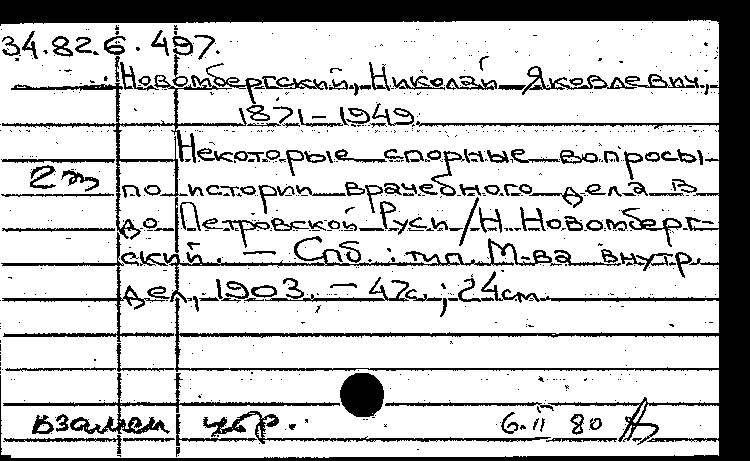 34.82.6.497.
Новомбергский, Николай Яковлевич,
1871-1949.
Некоторые спорные вопросы
2т по истории врачебного дела в
до Петровской Руси / Н. Новомберг-
ский. — Спб. : тип. М-ва внутр.
дел, 1903. — 47с. ; 24см.
взамен убр. 6.II 80